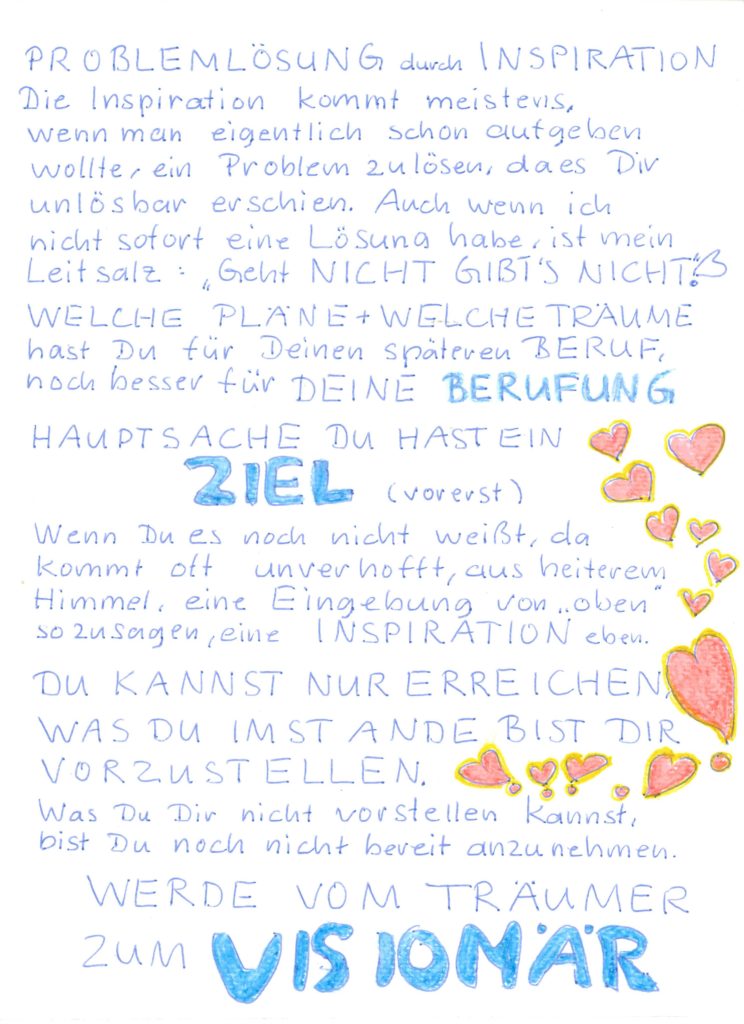 PROBLEMLÖSUNG durch INSPIRATION
Die Inspiration kommt meistens,
wenn man eigentlich schon aufgeben
wollte, ein Problem zu lösen, da es Dir
unlösbar erschien. Auch wenn ich
nicht sofort eine Lösung habe, ist mein
Leitsalz: „Geht NICHT GIBT'S NICHT!"
WELCHE PLÄNE + WELCHE TRÄUME
hast Du für Deinen späteren BERUF,
noch besser für DEINE BERUFUNG
HAUPTSACHE DU HAST EIN
ZIEL (vorerst)
Wenn Du es noch nicht weißt, da
kommt oft unverhofft, aus heiterem
Himmel, eine Eingebung von „oben"
sozusagen, eine INSPIRATION eben.
DU KANNST NUR ERREICHEN,
WAS DU IMSTANDE BIST DIR
VORZUSTELLEN.
Was Du Dir nicht vorstellen kannst,
bist Du noch nicht bereit anzunehmen.
WERDE VOM TRÄUMER
ZUM VISIONÄR